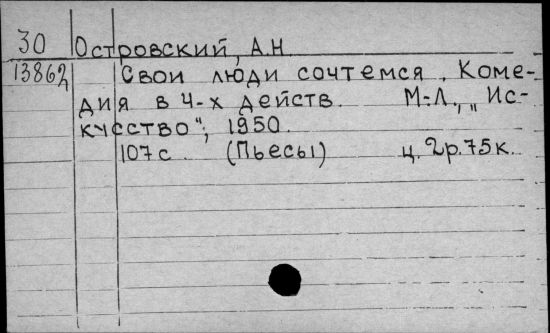 30 Островский, А.Н.
13862 Свои люди сочтемся. Коме-
дия в 4-х действ. М.-Л., „Ис-
кусство", 1950.
107 с. (Пьесы) ц. 2р.75к.